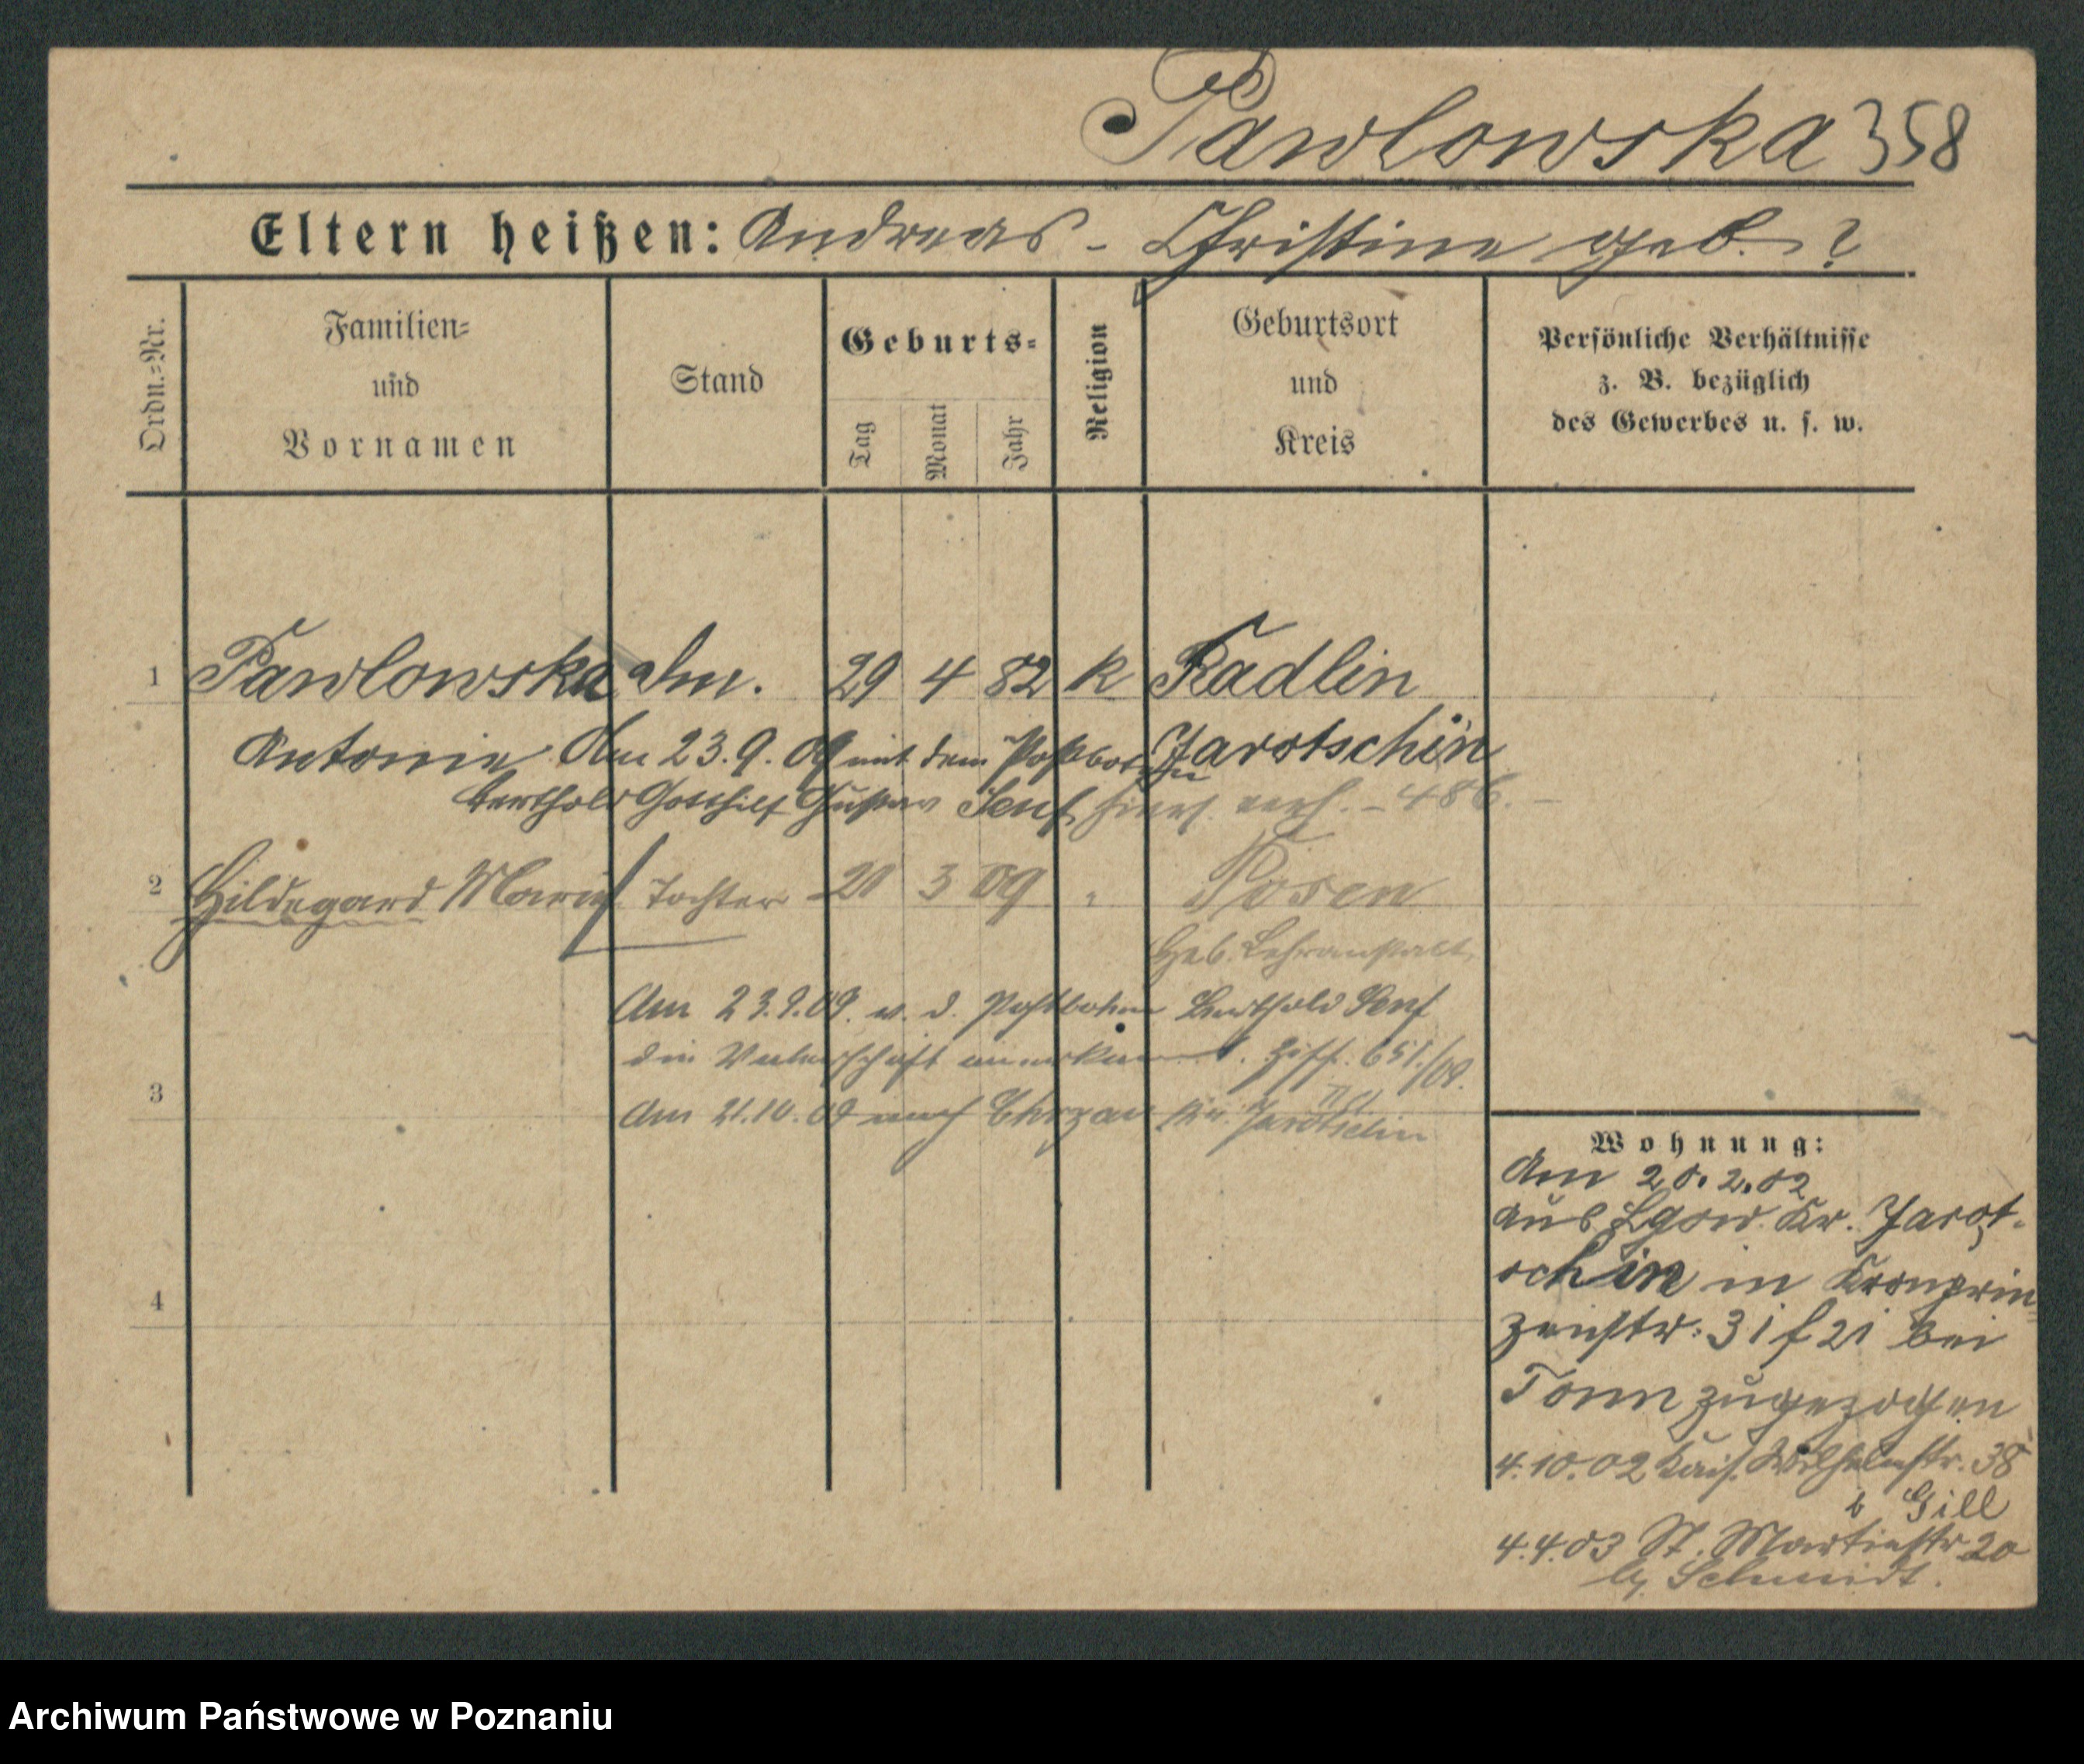 Pawlowska 358
Eltern heißen: Andreas - Christine geb. ?
Ordn.=Nr.
Familien=
und
Vornamen
Stand
Geburts=
Tag
Monat
Jahr
Religion
Geburtsort
und
Kreis
Persönliche Verhältnisse
z. B. bezüglich
des Gewerbes u. s. w.
1 Pawlowska 29 4 82 k Radlin
Antonie Am 23.9.09 mit dem Postboten Jarotschin
Berthold Gotthilf Gustav Senf hiers. verh. - 486. -
2 Hildegard Maria Tochter 3 09 " Posen
Heb. Lehranstalt
Am 23.9.09. v. d. Postboten Berthold Senf
die Vaterschaft anerkannt. 651/09.
3
Am 21.10.09 nach Chrzan Kr. Jarotschin
4
Wohnung:
Am 20.2.02
aus Lgow Kr. Jarot-
schin in Kronprin
zenstr. 31 bei
Tonn zugezogen
4.10.02 Kais. Wilhelmstr. 38
b Gill
4.4.03 St. Martinstr 20
b. Schmidt.
Archiwum Państwowe w Poznaniu